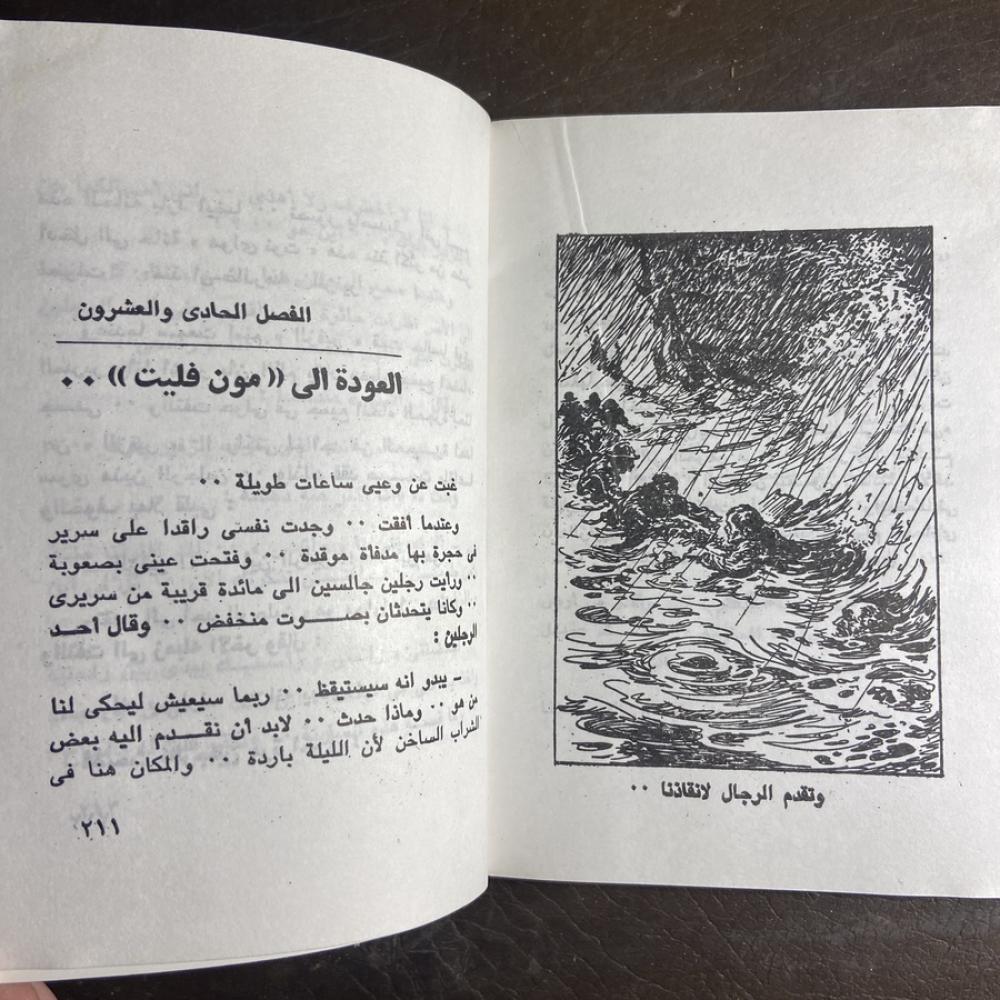 وتقدم الرجال لانقاذنا ٠٠
الفصل الحادى والعشرون
العودة الى ((مون فليت)) ٠٠
غبت عن وعيى ساعات طويلة ٠٠
وعندما أفقت ٠٠ وجدت نفسى راقدا على سرير
فى حجرة بها مدفأة موقدة ٠٠ وفتحت عينى بصعوبة
٠٠ ورايت رجلين جالسين الى مائدة قريبة من سريرى
٠٠ وكانا يتحدثان بصوت منخفض ٠٠ وقال أحد
الرجلين :
ـ يبدو انه سيستيقظ ٠٠ ربما سيعيش ليحكى لنا
من هو ٠٠ وماذا حدث ٠٠ لابد أن نقدم اليه بعض
الشراب الساخن لأن الليلة باردة ٠٠ والمكان هنا فى
٢١١